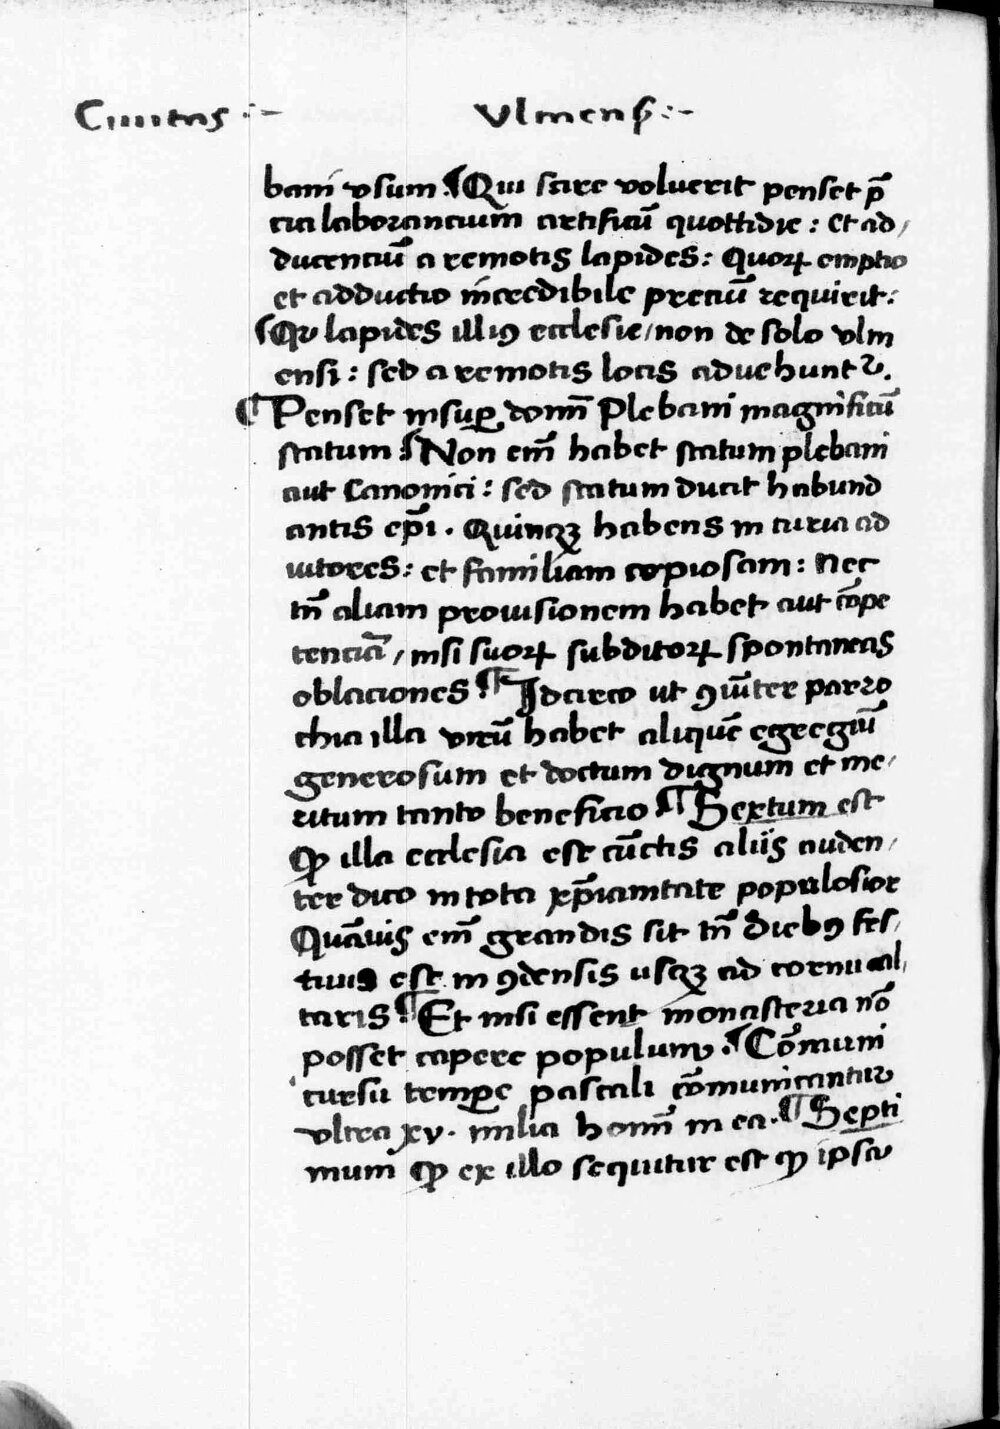 Ciuitas :- Vlmensꝭ :-
bani vsum ¶ Qui scire voluerit penset p̄
cia laborancium artificiū quottidie : Et ad/
ducenciū a remotis lapides : Quoꝝ emptio
et adductio incredibile preciū requirit :
¶ Qꝛ lapides illiꝰ ecclesie / non de solo vlm
ensi : sed a remotis locis aduehunt᷑.
¶ Penset insuꝑ domī Plebani magnificū
statum ¶ Non em̄ habet statum plebani
aut Canonici : sed statum ducit habund
antis ep̄i . Quinqꝫ habens in curia ad
iutores : et familiam copiosam : Nec
tn̄ aliam prouisionem habet aut cōpe
tenciā / nisi suoꝝ subditoꝝ spontaneas
oblaciones ¶ Idcirco ut ꝯiūter parro
chia illa virū habet aliquē egregiū
generosum et doctum dignum et me/
ritum tanto beneficio ¶ Sextum est
ꝙ illa ecclesia est cūctis aliis auden/
ter dico in tota xp̄ianitate populosior
Quāuis em̄ grandis sit tn̄ diebꝰ fes/
tiuis est in ꝯdensis usqꝫ ad cornu al/
taris ¶ Et nisi essent monasteria nō
posset capere populum . ¶ Cōmuni
cursu tempe̱ pascali cōmunicantur
vltra xv . milia homī in ea . ¶ Septi
mum ꝙ ex illo sequitur est ꝙ ipsa